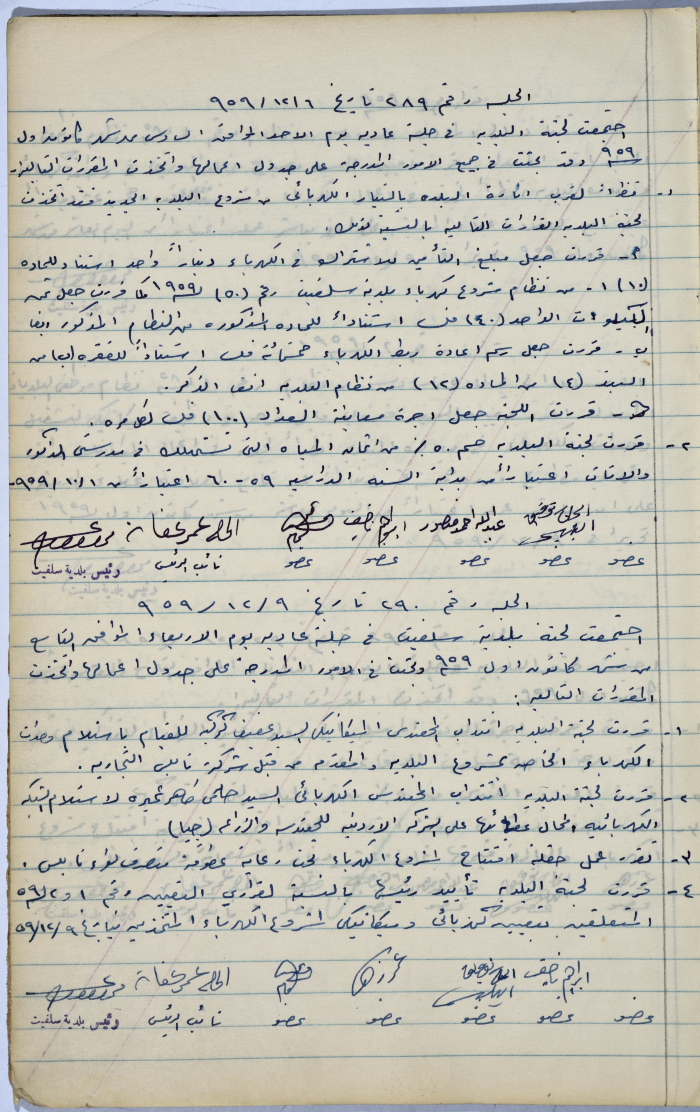 الجلسه رقم ٢٨٩ تاريخ ٩٥٩/١٢/٦
اجتمعت لجنة البلديه في جلسة عاديه يوم الاحد الموافق السادس من شهر كانون اول
٩٥٩ وقد بحثت في جميع الامور المدرجة على جدول اعمالها واتخذت المقررات التاليه:
١- نظراً لقرب انارة البلده بالتيار الكهربائي من مشروع البلديه الجديد فقد اتخذت
لجنة البلديه القرارات التاليه بالنسبة لذلك.
٢- قررت جعل مبلغ التأمين للاشتراك في الكهرباء ديناراً واحد استناداً للماده
(١٠) ١- من نظام مشروع كهرباء بلدية سلفيت رقم (٥٠) لسنة ١٩٥٩ كما قررت جعل ثمن
الكيلو وات الواحد (٤٠) فلس استناداً للماده المذكوره من النظام المذكور ايضا
ب- قررت جعل رسم اعادة ربط الكهرباء خمسمائة فلس استناداً للفقره ايضا من
البند (٤) من الماده (١٢) من نظام البلديه انف الذكر.
ج- قررت اللجنة جعل اجرة معاينة العداد (١٠٠) فلس لكل مره.
٢- قررت لجنة البلديه حسم ٥٠٪ من اثمان المياه التي تستهلك في مدرستي الذكور
والاناث اعتباراً من بداية السنه الدراسيه ٥٩-٦٠ اعتباراً من ٩٥٩/١٠/١
ابراهيم ناصيف عبدالله احمد منصور الحاج عمر عفانة
عضو عضو عضو عضو نائب الرئيس رئيس بلدية سلفيت
الجلسه رقم ٢٩٠ تاريخ ٩٥٩/١٢/٩
اجتمعت لجنة بلدية سلفيت في جلسة عاديه يوم الاربعاء الموافق التاسع
من شهر كانون اول ٩٥٩ وبحثت في الامور المدرجة على جدول اعمالها واتخذت
المقررات التاليه:
١- قررت لجنة البلديه انتداب المهندس الميكانيكي السيد عفيف للقيام باستلام وحدات
الكهرباء الخاصه بمشروع البلديه والمقدم من قبل شركة نابلس التجاريه.
٢- قررت لجنة البلديه انتداب المهندس الكهربائي السيد حلمي طاهر لاستلام الشبكه
الكهربائيه المحال عطائها على الشركه الاردنيه للهندسه والزراعه (جيا)
٣- تقرر عمل حفلة افتتاح لمشروع الكهرباء تحت رعاية عطوفة متصرف لواء نابلس.
٤- قررت لجنة البلديه تأييد رئيسها بالنسبة لقراري التعيين رقم ١ و ٢/٥٩
المتعلقين بتعيين كهربائي وميكانيكي لمشروع الكهرباء المتخذين بتاريخ ٥٩/١٢/٩
ابراهيم ناصيف الحاج عمر عفانة
عضو عضو عضو عضو عضو نائب الرئيس رئيس بلدية سلفيت